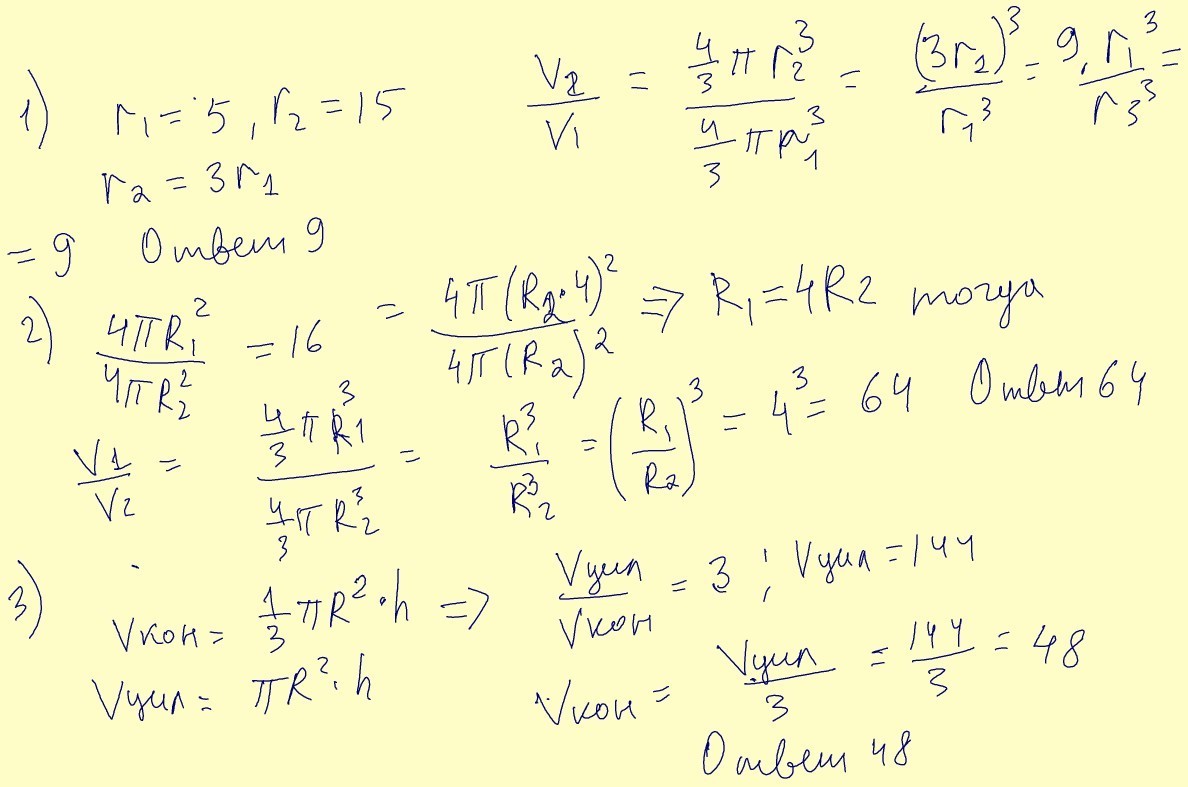 1) r₁ = 5, r₂ = 15   V₂/V₁ = (4/3 π r₂³)/(4/3 π r₁³) = (3r₂)³/r₁³ = 9·r₁³/r₃³ =
r₂ = 3r₁
= 9 Ответ 9
2) 4πR₁²/4πR₂² = 16 = 4π(R₂·4)²/4π(R₂)² => R₁ = 4R2 тогда
V₁/V₂ = (4/3 π R₁³)/(4/3 π R₂³) = R₁³/R₂³ = (R₁/R₂)³ = 4³ = 64 Ответ 64
3) Vкон = 1/3 πR²·h => Vцил/Vкон = 3 ; Vцил = 144
Vцил = πR²·h   Vкон = Vцил/3 = 144/3 = 48
Ответ 48